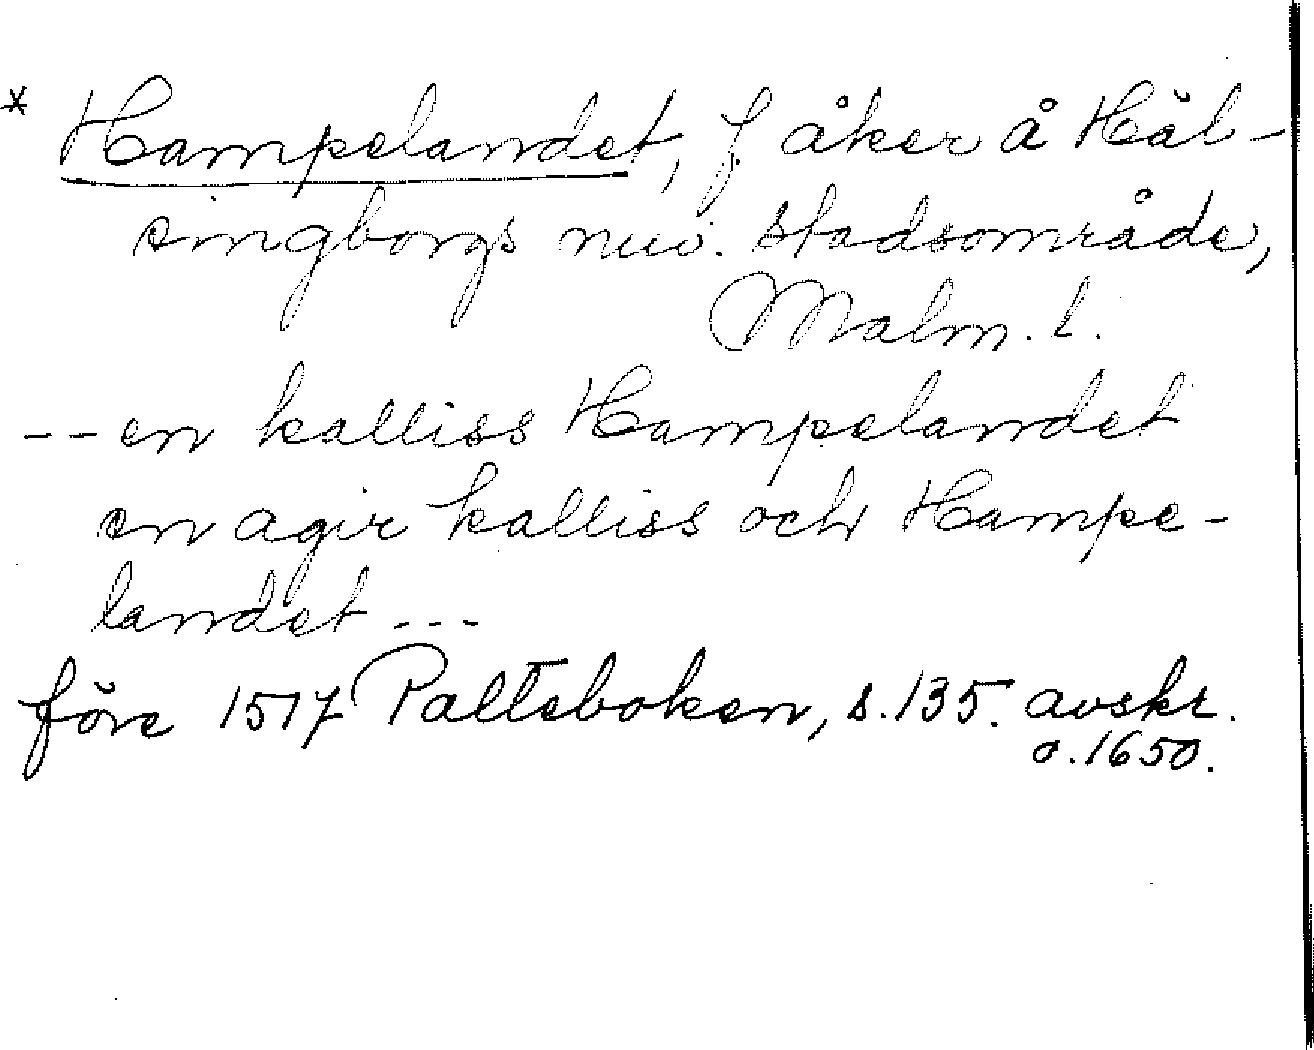 * Hampelandet, f. åker å Häl-
singborgs nuv. stadsområde,
Malm. l.
-- en kalliss Hampelandet
en agir kalliss och Hampe-
landet ---
före 1517 Palteboken, s. 135. avskr.
o. 1650.